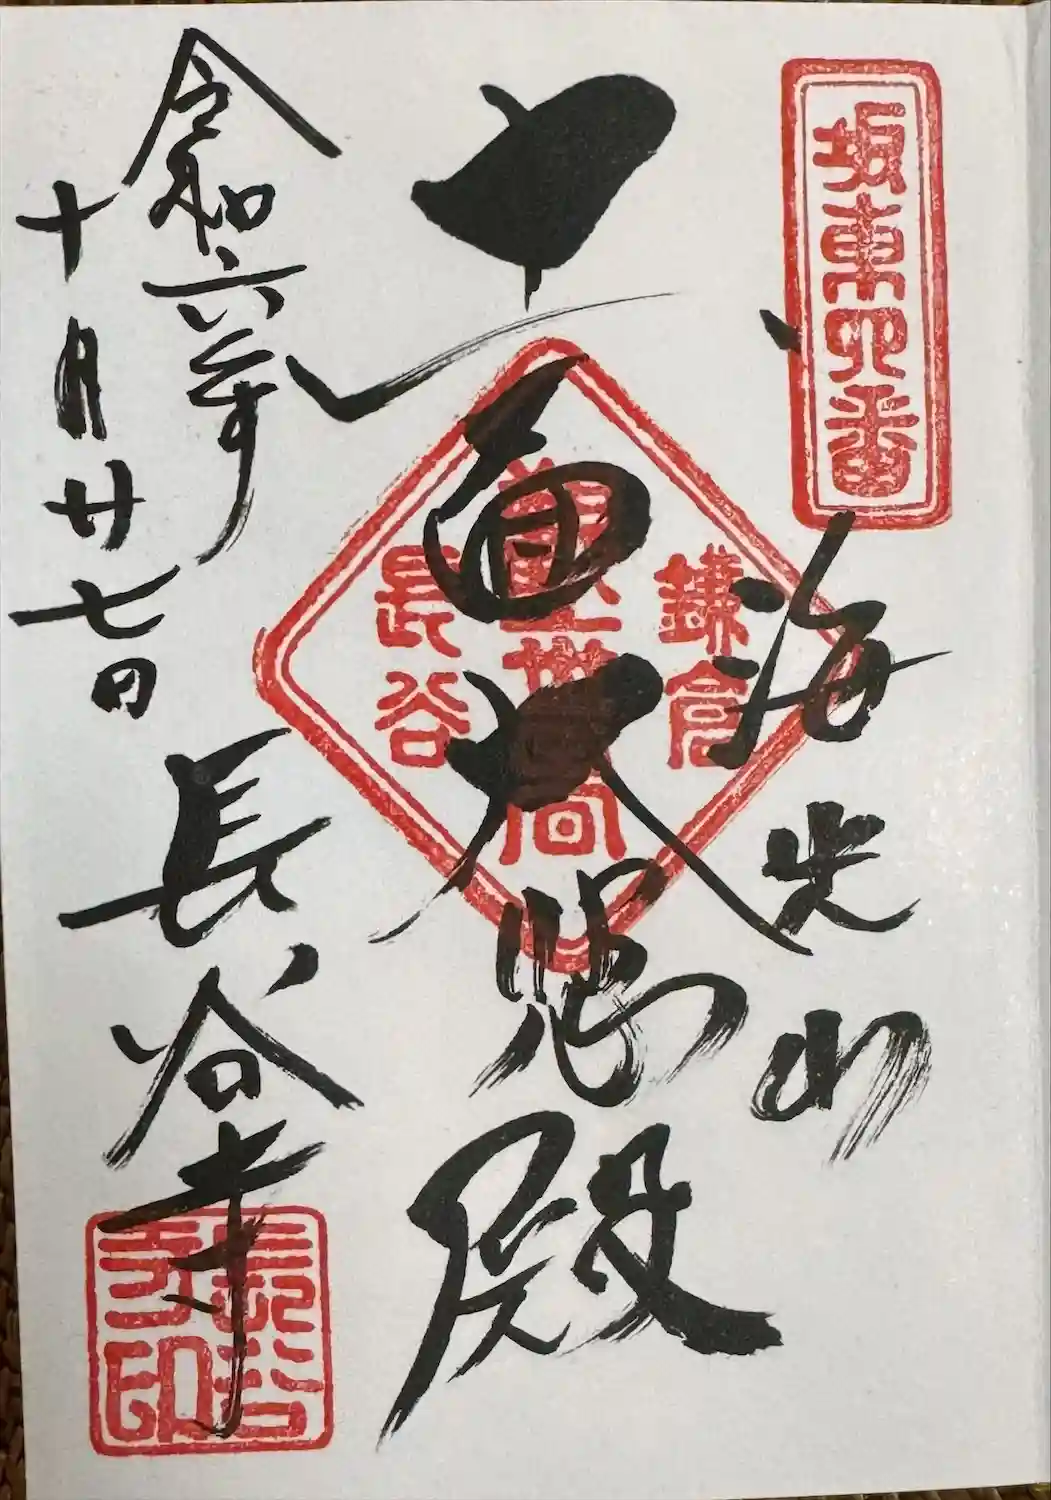 坂東四番
海光山
十一面大悲殿
鎌倉
観世音
長谷
令和六年
十月廿七日
長谷寺
長谷寺印